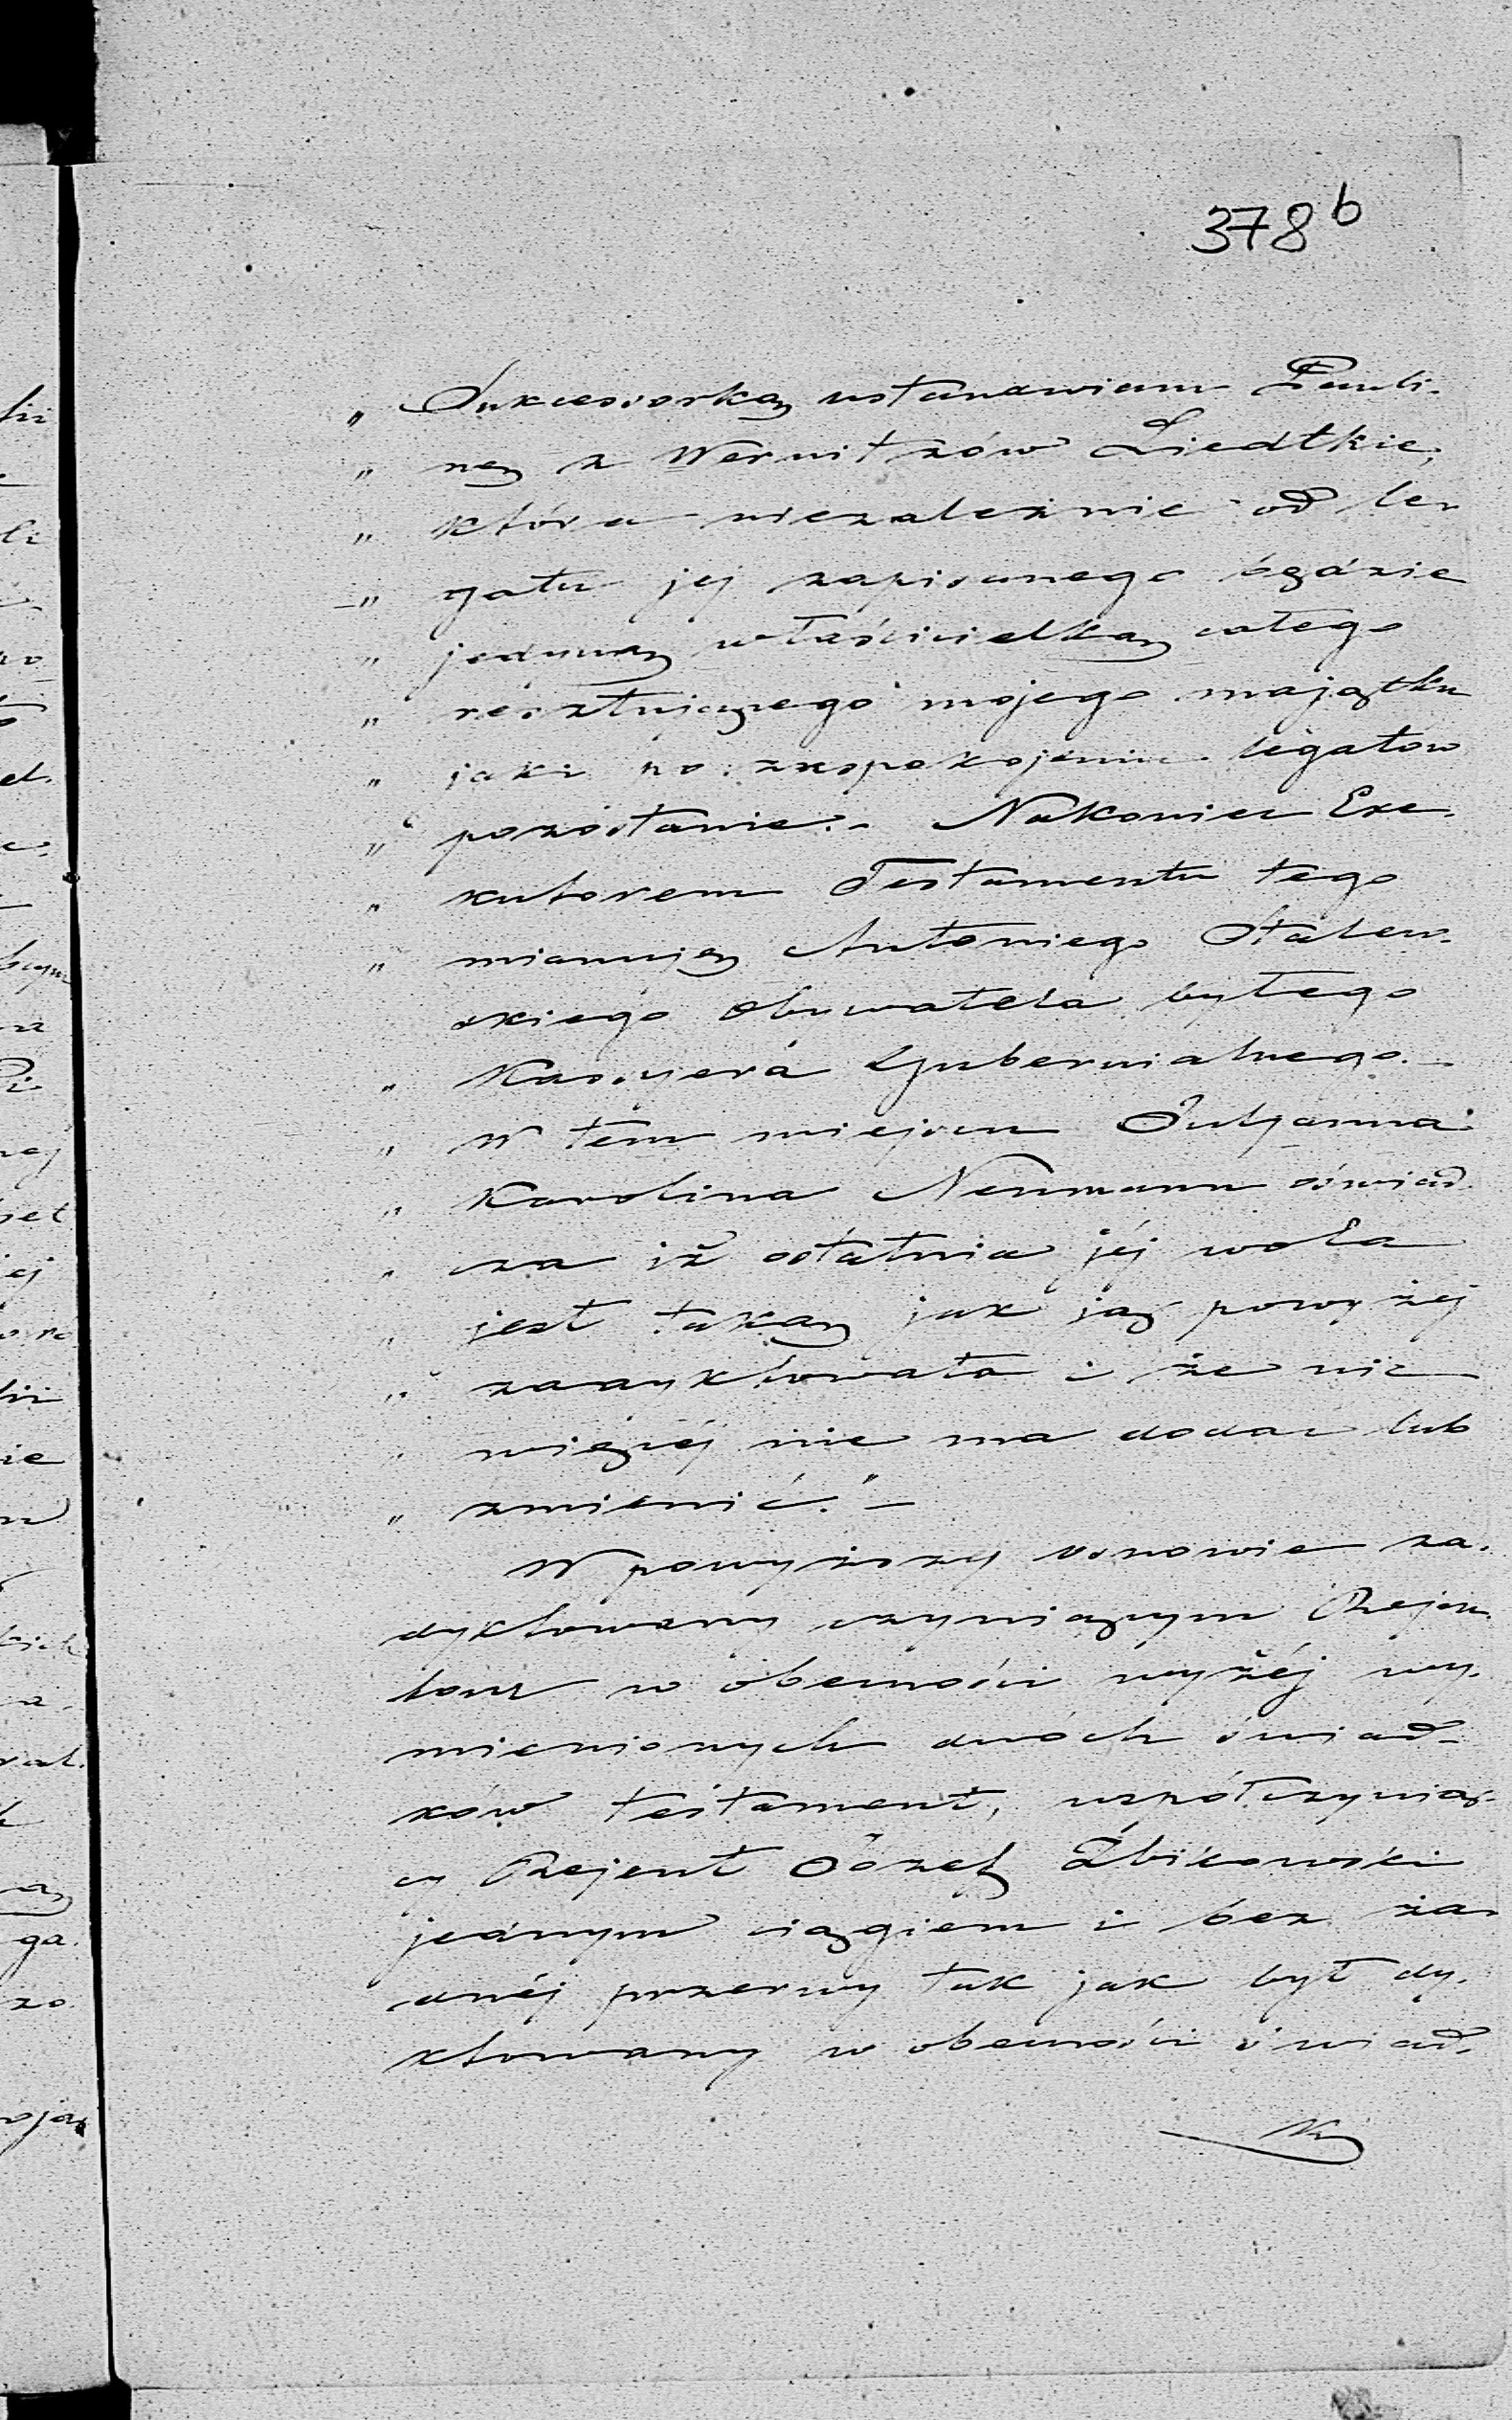 378 b
„ Sukcesorką ustanawiam Pauli-
„ nę z Wernitzów Liedtkie,
„ która niezależnie od le-
„ gatu jej zapisanego będzie
„ jedyną właścicielką całego
„ resztującego mojego majątku
„ jaki po zaspokojeniu legatów
„ pozostanie. – Nakoniec Exe-
„ kutorem Testamentu tego
„ mianuję Antoniego Stalew-
skiego Obywatela byłego
„ Kassyera Gubernialnego. –
„ W tém miejscu Julyanna
„ Karolina Neumann oświad-
„ cza iż ostatnia jéj wola
„ jest taką jak ją powyżej
„ zadyktowała i że nic
„ więcéj nie ma dodać lub
„ zmienić." –
W powyższy osnowie za-
dyktowany czyniącym Rejen-
tom w obecności wyżéj wy-
mienionych dwóch świad-
ków testament, współczynią-
cy Rejent Józef Zbikowski
jednym ciągiem i bez ża-
dnéj przerwy tak jak był dy-
ktowany w obecności świad-